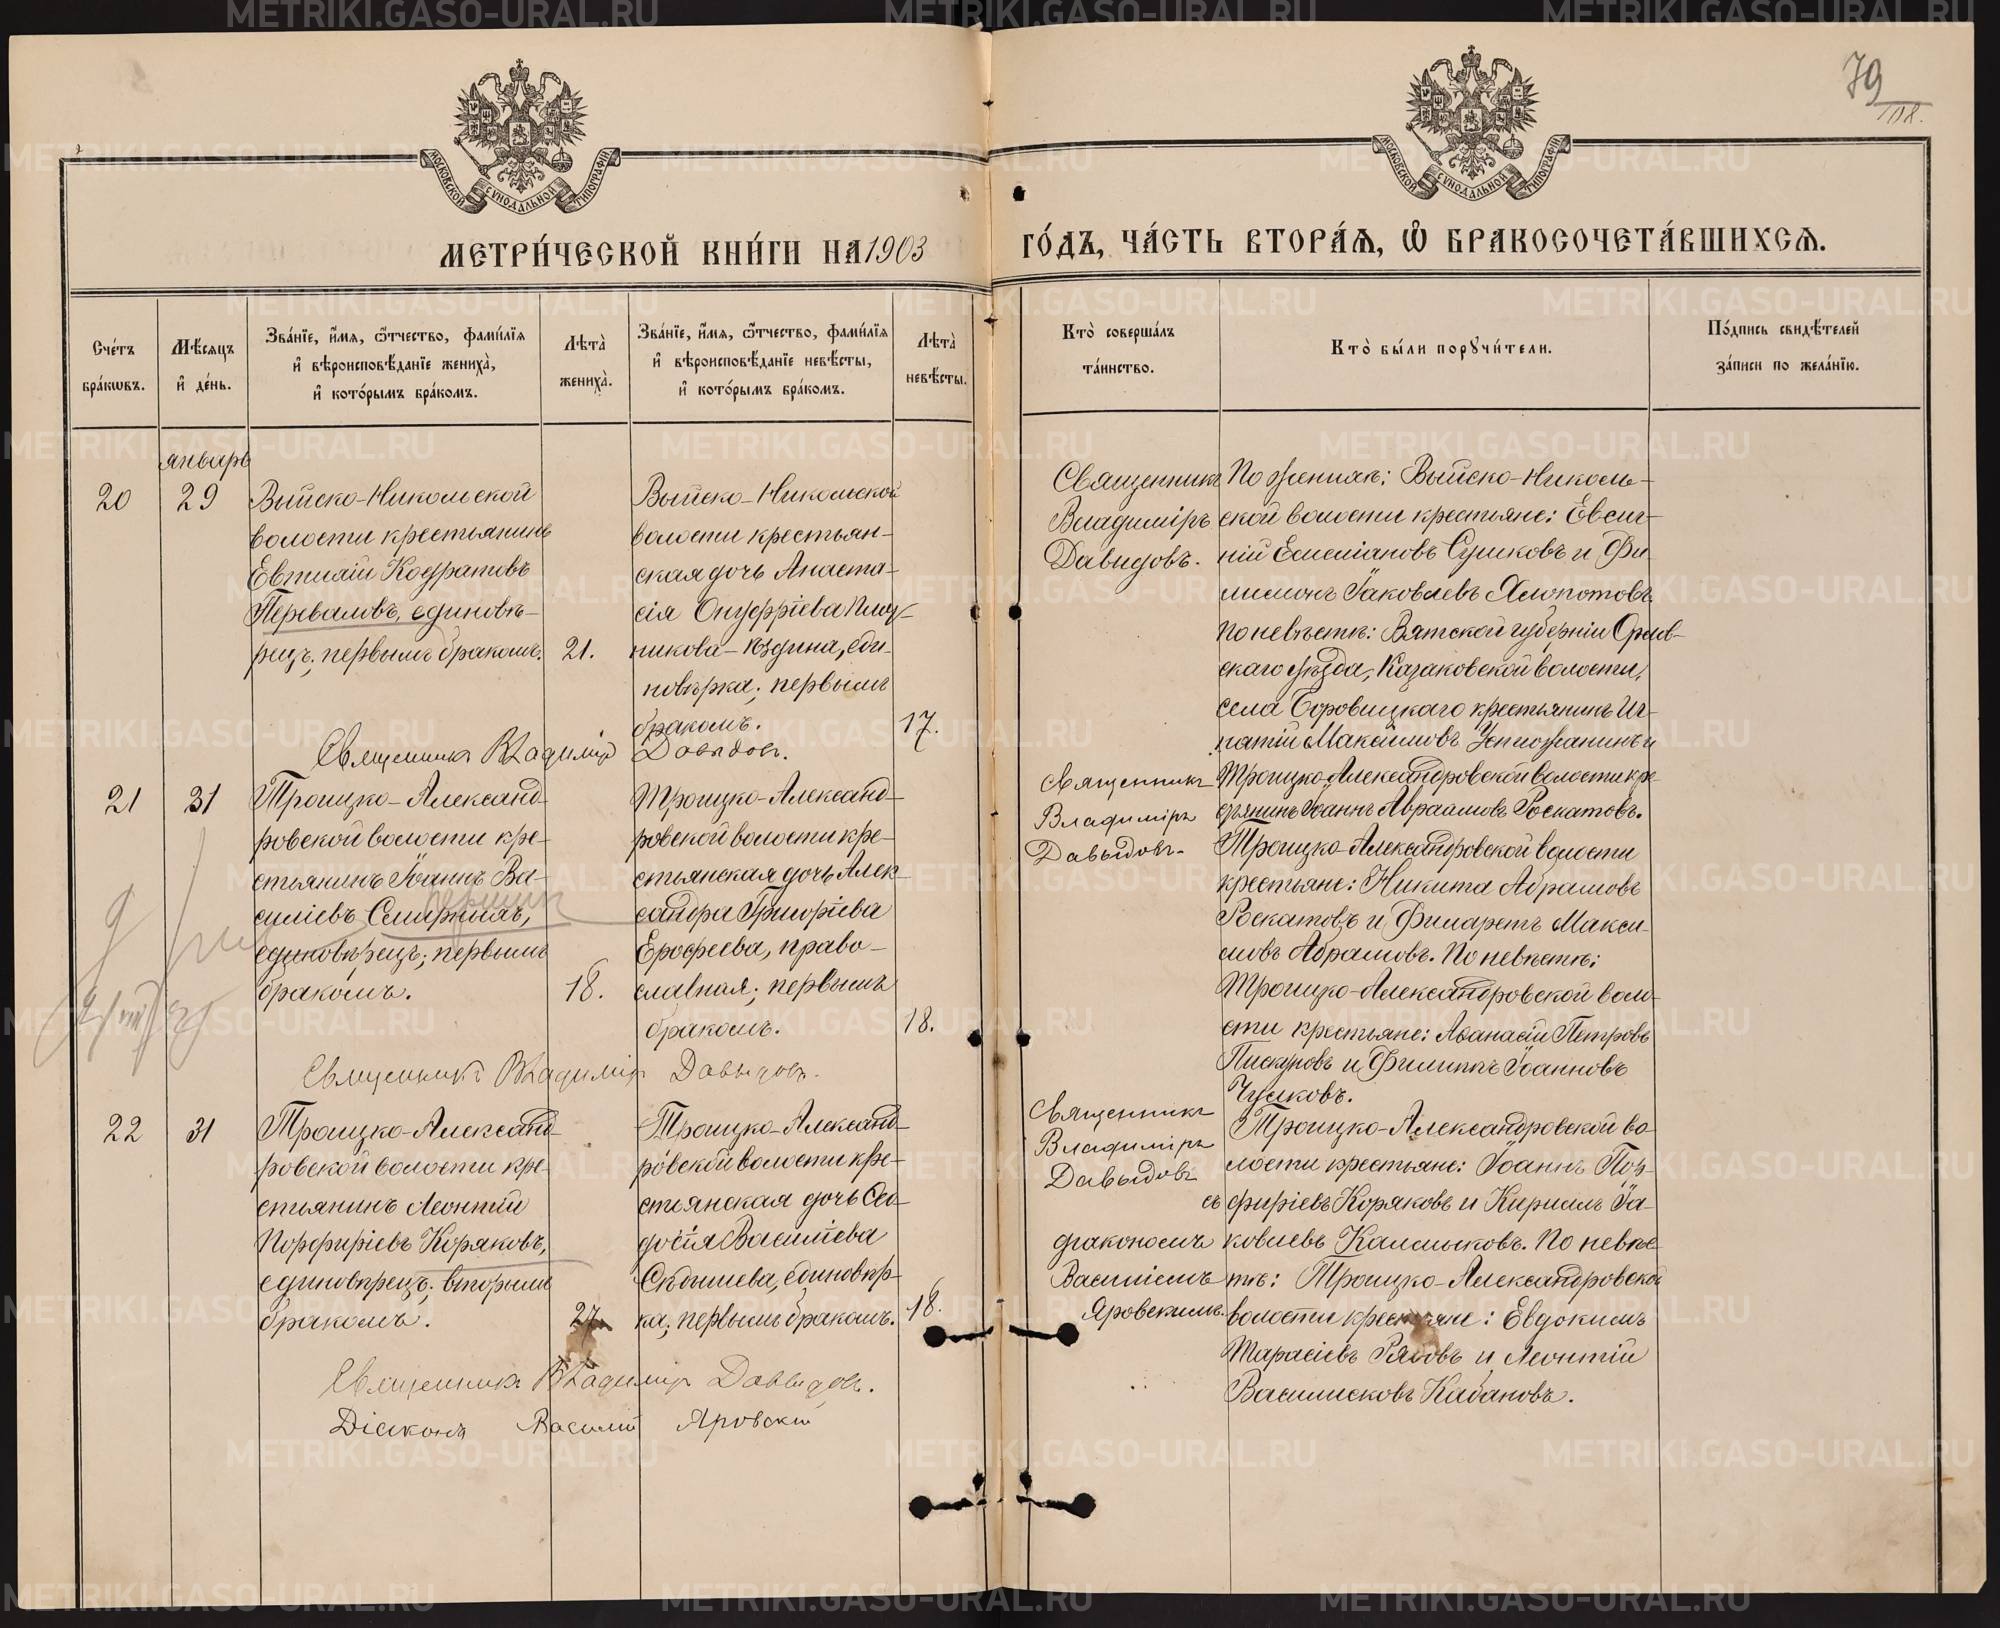 79
108.
МЕТРИ́ЧЕСКОЙ КНИ́ГИ НА 1903
ГО́ДЪ, ЧА́СТЬ ВТОРА́Ѧ, Ѡ҆ БРАКОСОЧЕТА́ВШИХСѦ.
Сче́тъ бра́кѡвъ.
Мѣ́сяцъ и҆ де́нь.
Зва́нїе, и҆́мѧ, ѻ҆́тчество, фами́лїѧ
и҆ вѣроисповѣ́данїе жениха̀,
и҆ кото́рымъ бра́комъ.
Лѣта̀ жениха̀.
Зва́нїе, и҆́мѧ, ѻ҆́тчество, фами́лїѧ
и҆ вѣроисповѣ́данїе невѣ́сты,
и҆ кото́рымъ бра́комъ.
Лѣта̀ невѣ́сты.
Кто̀ соверша́лъ та́инство.
Кто̀ бы́ли порꙋчи́тели.
По́дпись свидѣ́телей за́писи по жела́нїю.
январь
20
29
Выйско-Никольской
волости крестьянинъ
Евгений Кодратовъ
Перваловъ, единовѣ-
рецъ; первымъ бракомъ.
21.
Выйско-Никольской
волости крестьян-
ская дочь Анаста-
сія Онуфріева Плот-
никова-Юздина, еди-
новѣрка; первымъ
бракомъ.
17.
Священникъ
Владиміръ
Давыдовъ.
По женихѣ: Выйско-Николь-
ской волости крестьяне: Евси-
ній Емеліановъ Сушковъ и Фи-
лимонъ Іаковлевъ Хлопотовъ.
По невѣстѣ: Вятской губерніи Орлов-
скаго уѣзда, Казаковской волости,
села Боровицкаго крестьянинъ Иг-
натій Максимовъ Устюжанинъ и
Троицко-Александровской волости кре-
стьянинъ Іоаннъ Авраамовъ Роскатовъ.
Священникъ Владиміръ Давыдовъ.
21
31
Троицко-Александ-
ровской волости кре-
стьянинъ Іоаннъ Ва-
силіевъ Смиртихъ,
единовѣрецъ; первымъ
бракомъ.
18.
Троицко-Александ-
ровской волости кре-
стьянская дочь Алек-
сандра Григоріева
Ерофеева, право-
славная; первымъ
бракомъ.
18.
Священникъ
Владиміръ
Давыдовъ.
Троицко-Александровской волости
крестьяне: Никита Абрамовъ
Роскатовъ и Филаретъ Макси-
мовъ Абрамовъ. По невѣстѣ:
Троицко-Александровской воло-
сти крестьяне: Аѳанасій Петровъ
Пискуровъ и Филиппъ Іоанновъ
Чулковъ.
Священникъ Владиміръ Давыдовъ.
22
31
Троицко-Александ-
ровской волости кре-
стьянинъ Леонтій
Порфиріевъ Коряковъ,
единовѣрецъ; вторымъ
бракомъ.
27.
Троицко-Александ-
ровской волости кре-
стьянская дочь Ѳео-
досія Василіева
Сѣдышева, единовѣр-
ка; первымъ бракомъ.
18.
Священникъ
Владиміръ
Давыдовъ
съ
діакономъ
Василіемъ
Яровскимъ.
Троицко-Александровской во-
лости крестьяне: Іоаннъ Пор-
фиріевъ Коряковъ и Кириллъ Іа-
ковлевъ Калмыковъ. По невѣс-
тѣ: Троицко-Александровской
волости крестьяне: Евдокимъ
Тарасіевъ Рябовъ и Леонтій
Василисковъ Кабановъ.
Священникъ Владиміръ Давыдовъ.
Діаконъ Василій Яровскій